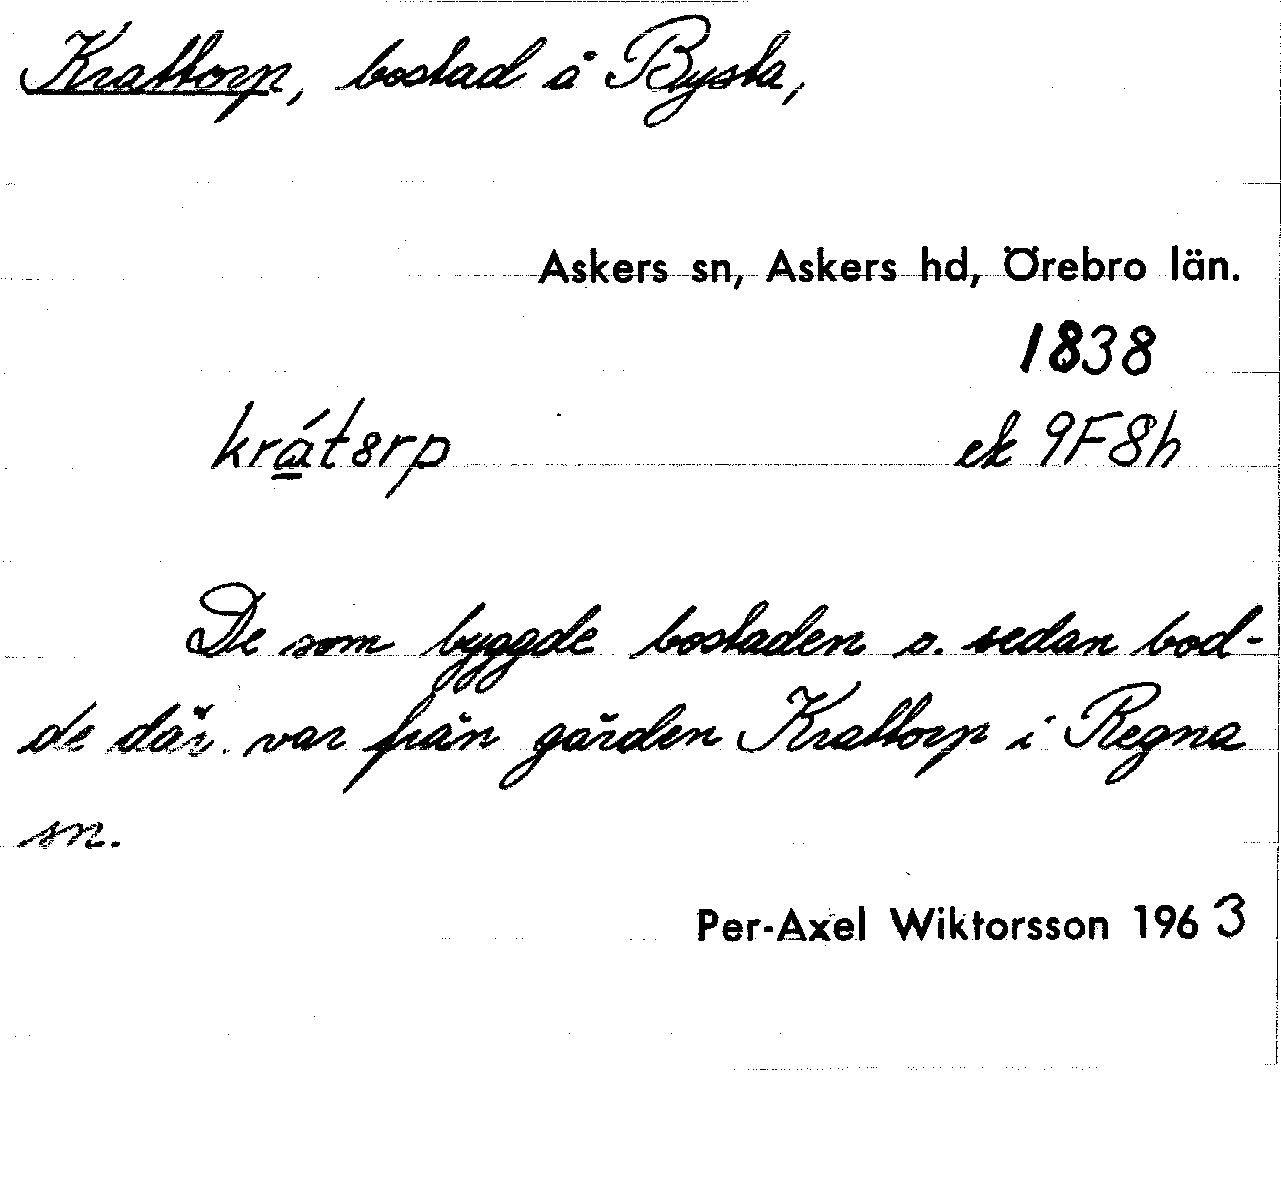 Krattorp, bostad å Bysta,
Askers sn, Askers hd, Örebro län.
1838
krát8rp ek 9F8h
De som byggde bostaden o. sedan bod-
de där var från gården Krattorp i Regna
sn.
Per-Axel Wiktorsson 1963